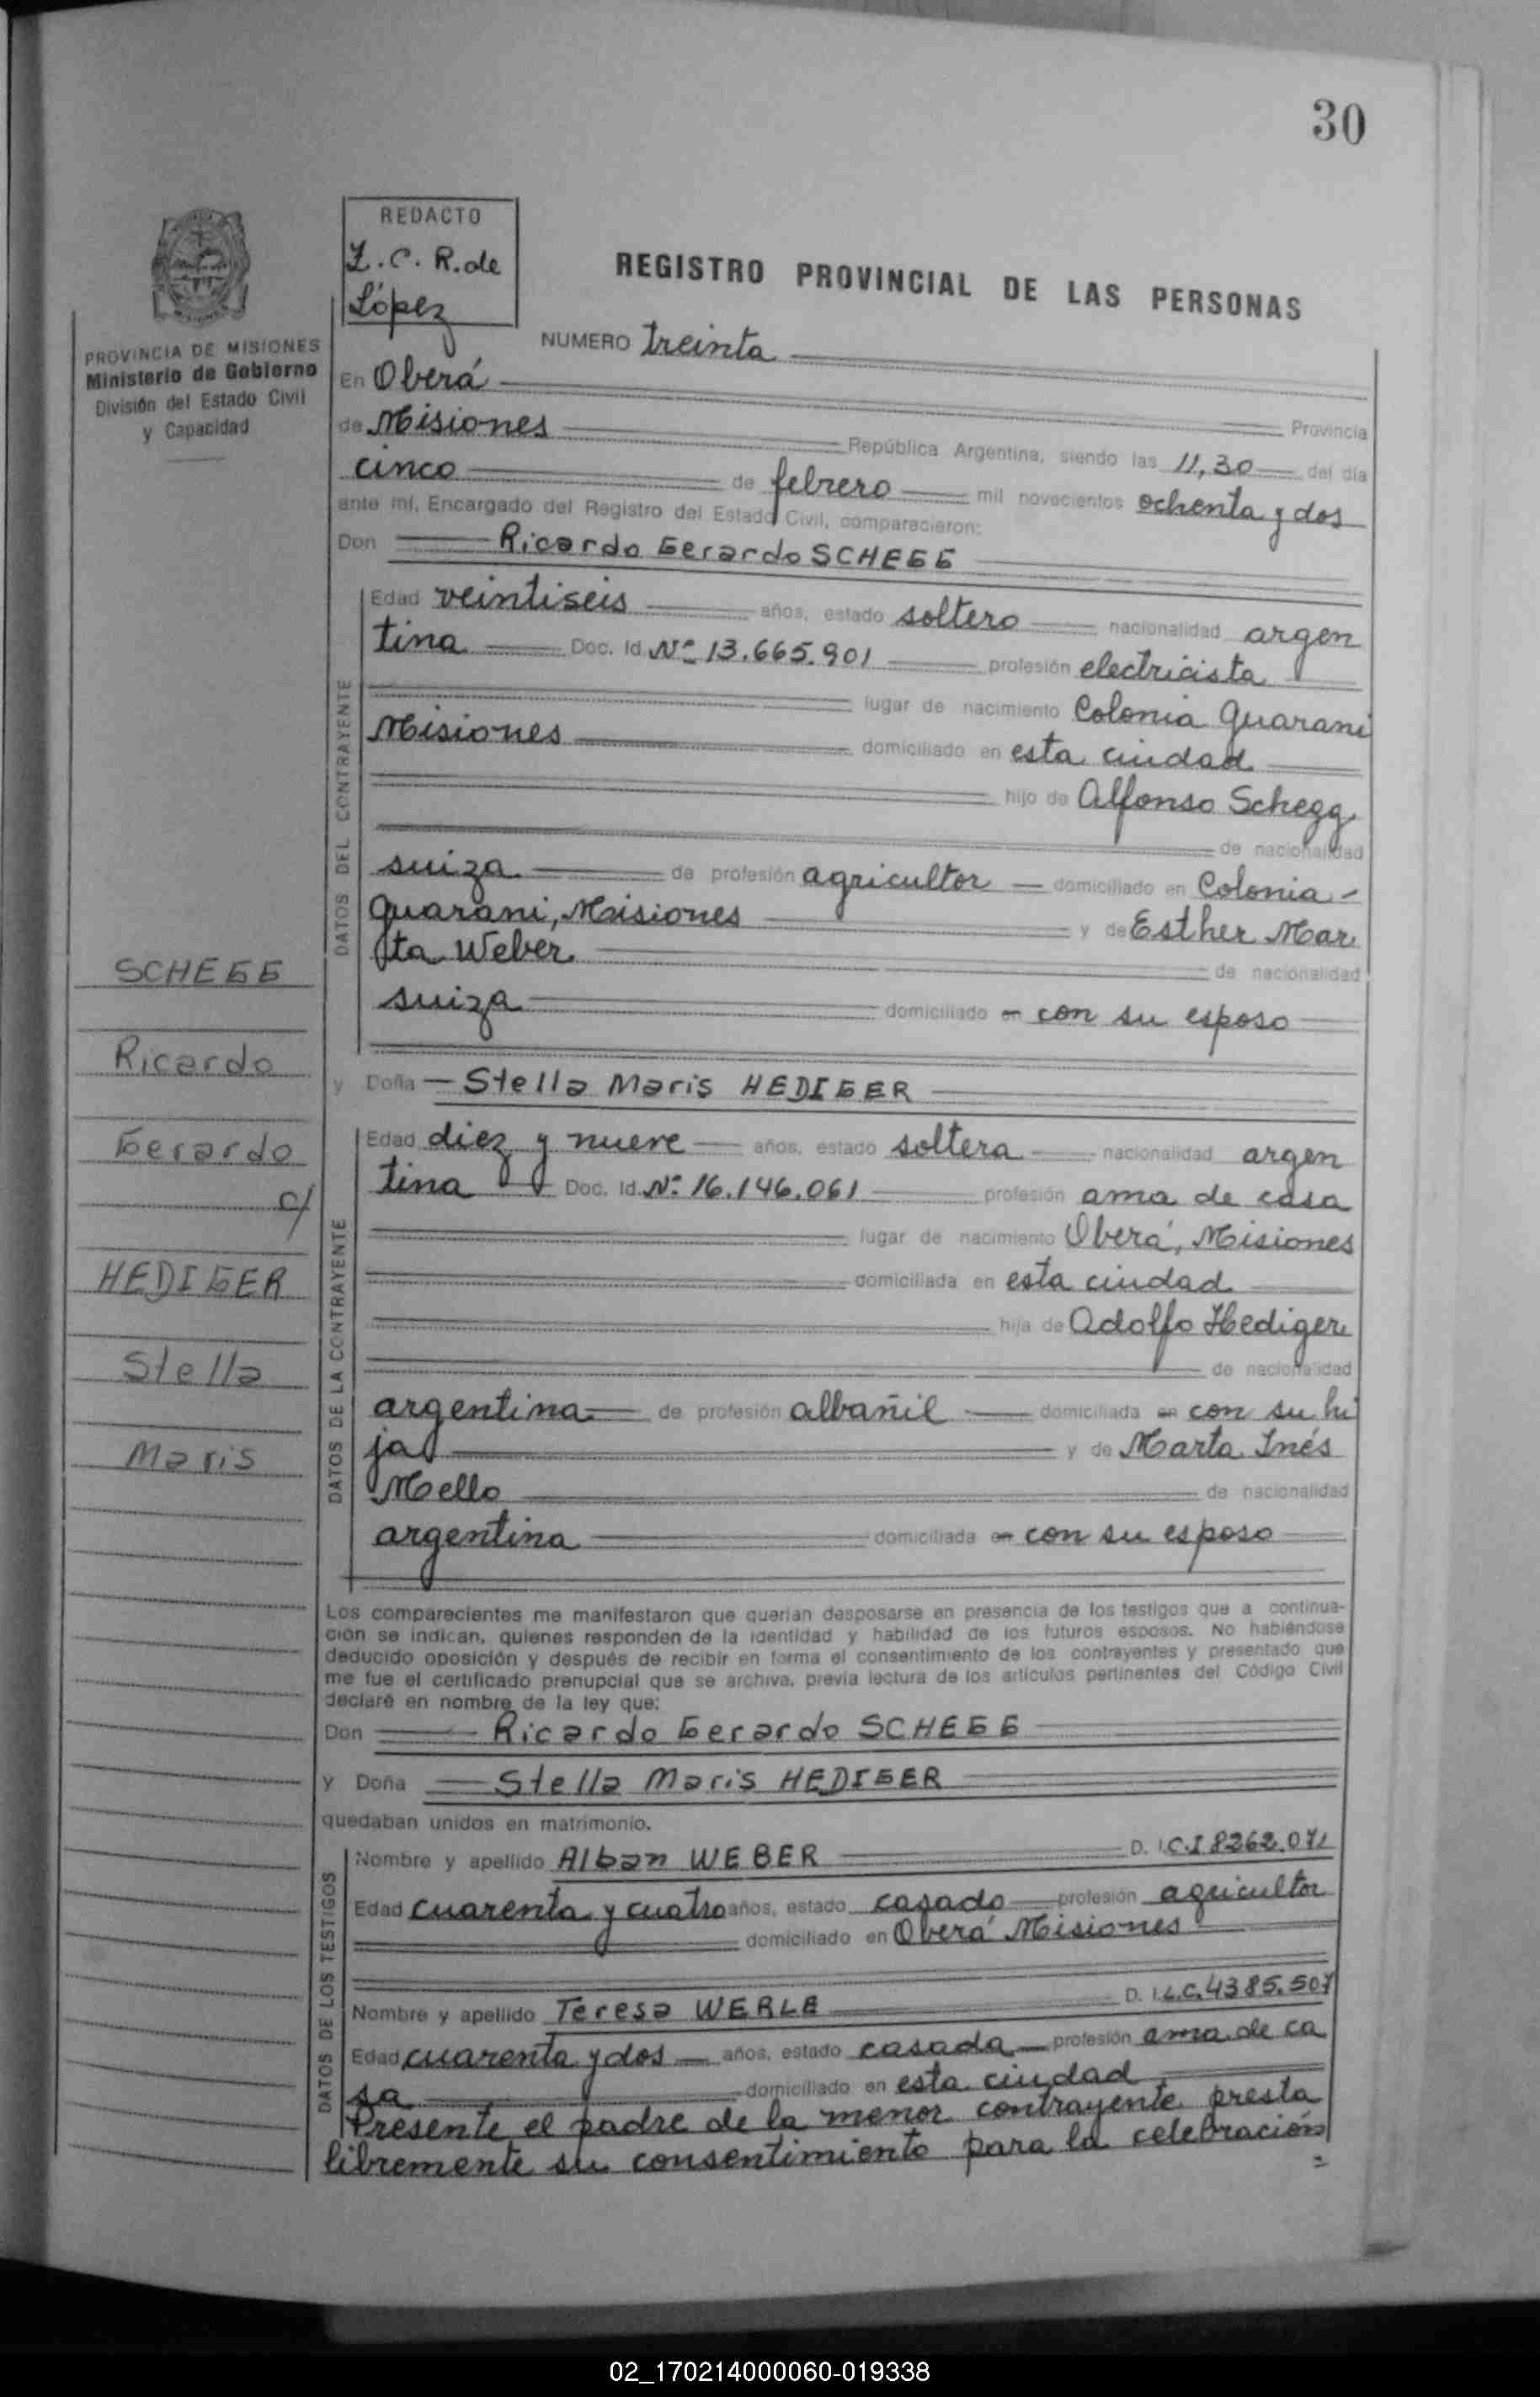 30
REDACTO
I. C. R. de
López
REGISTRO PROVINCIAL DE LAS PERSONAS
PROVINCIA DE MISIONES
Ministerio de Gobierno
División del Estado Civil
y Capacidad
NUMERO treinta
En Oberá
Provincia
de Misiones República Argentina, siendo las 11,30 del día
cinco de febrero mil novecientos ochenta y dos
ante mí, Encargado del Registro del Estado Civil, comparecieron:
Don Ricardo Gerardo SCHEGG
DATOS DEL CONTRAYENTE
Edad veintiseis años, estado soltero nacionalidad argen
tina Doc. Id. Nº 13.665.901 profesión electricista
lugar de nacimiento Colonia Guaraní
Misiones domiciliado en esta ciudad
hijo de Alfonso Schegg
de nacionalidad
suiza de profesión agricultor domiciliado en Colonia
Guaraní, Misiones y de Esther Mar
ta Weber
de nacionalidad
suiza domiciliado en con su esposo
y Doña Stella Maris HEDIGER
DATOS DE LA CONTRAYENTE
Edad diez y nueve años, estado soltera nacionalidad argen
tina Doc. Id. Nº 16.146.061 profesión ama de casa
lugar de nacimiento Oberá, Misiones
domiciliada en esta ciudad
hija de Adolfo Hediger
de nacionalidad
argentina de profesión albañil domiciliada en con su hi
ja y de Marta Inés
Mello de nacionalidad
argentina domiciliada en con su esposo
SCHEGG
Ricardo
Gerardo
c/
HEDIGER
Stella
Maris
Los comparecientes me manifestaron que querían desposarse en presencia de los testigos que a continua-
ción se indican, quienes responden de la identidad y habilidad de los futuros esposos. No habiéndose
deducido oposición y después de recibir en forma el consentimiento de los contrayentes y presentado que
me fue el certificado prenupcial que se archiva, previa lectura de los artículos pertinentes del Código Civil
declaré en nombre de la ley que:
Don Ricardo Gerardo SCHEGG
y Doña Stella Maris HEDIGER
quedaban unidos en matrimonio.
DATOS DE LOS TESTIGOS
Nombre y apellido Alban WEBER D. I. C.I 8262.071
Edad cuarenta y cuatro años, estado casado profesión agricultor
domiciliado en Oberá Misiones
Nombre y apellido Teresa WERLE D. I. L.C. 4385.507
Edad cuarenta y dos años, estado casada profesión ama de ca
sa domiciliado en esta ciudad
Presente el padre de la menor contrayente presta
libremente su consentimiento para la celebración
=
02_170214000060-019338